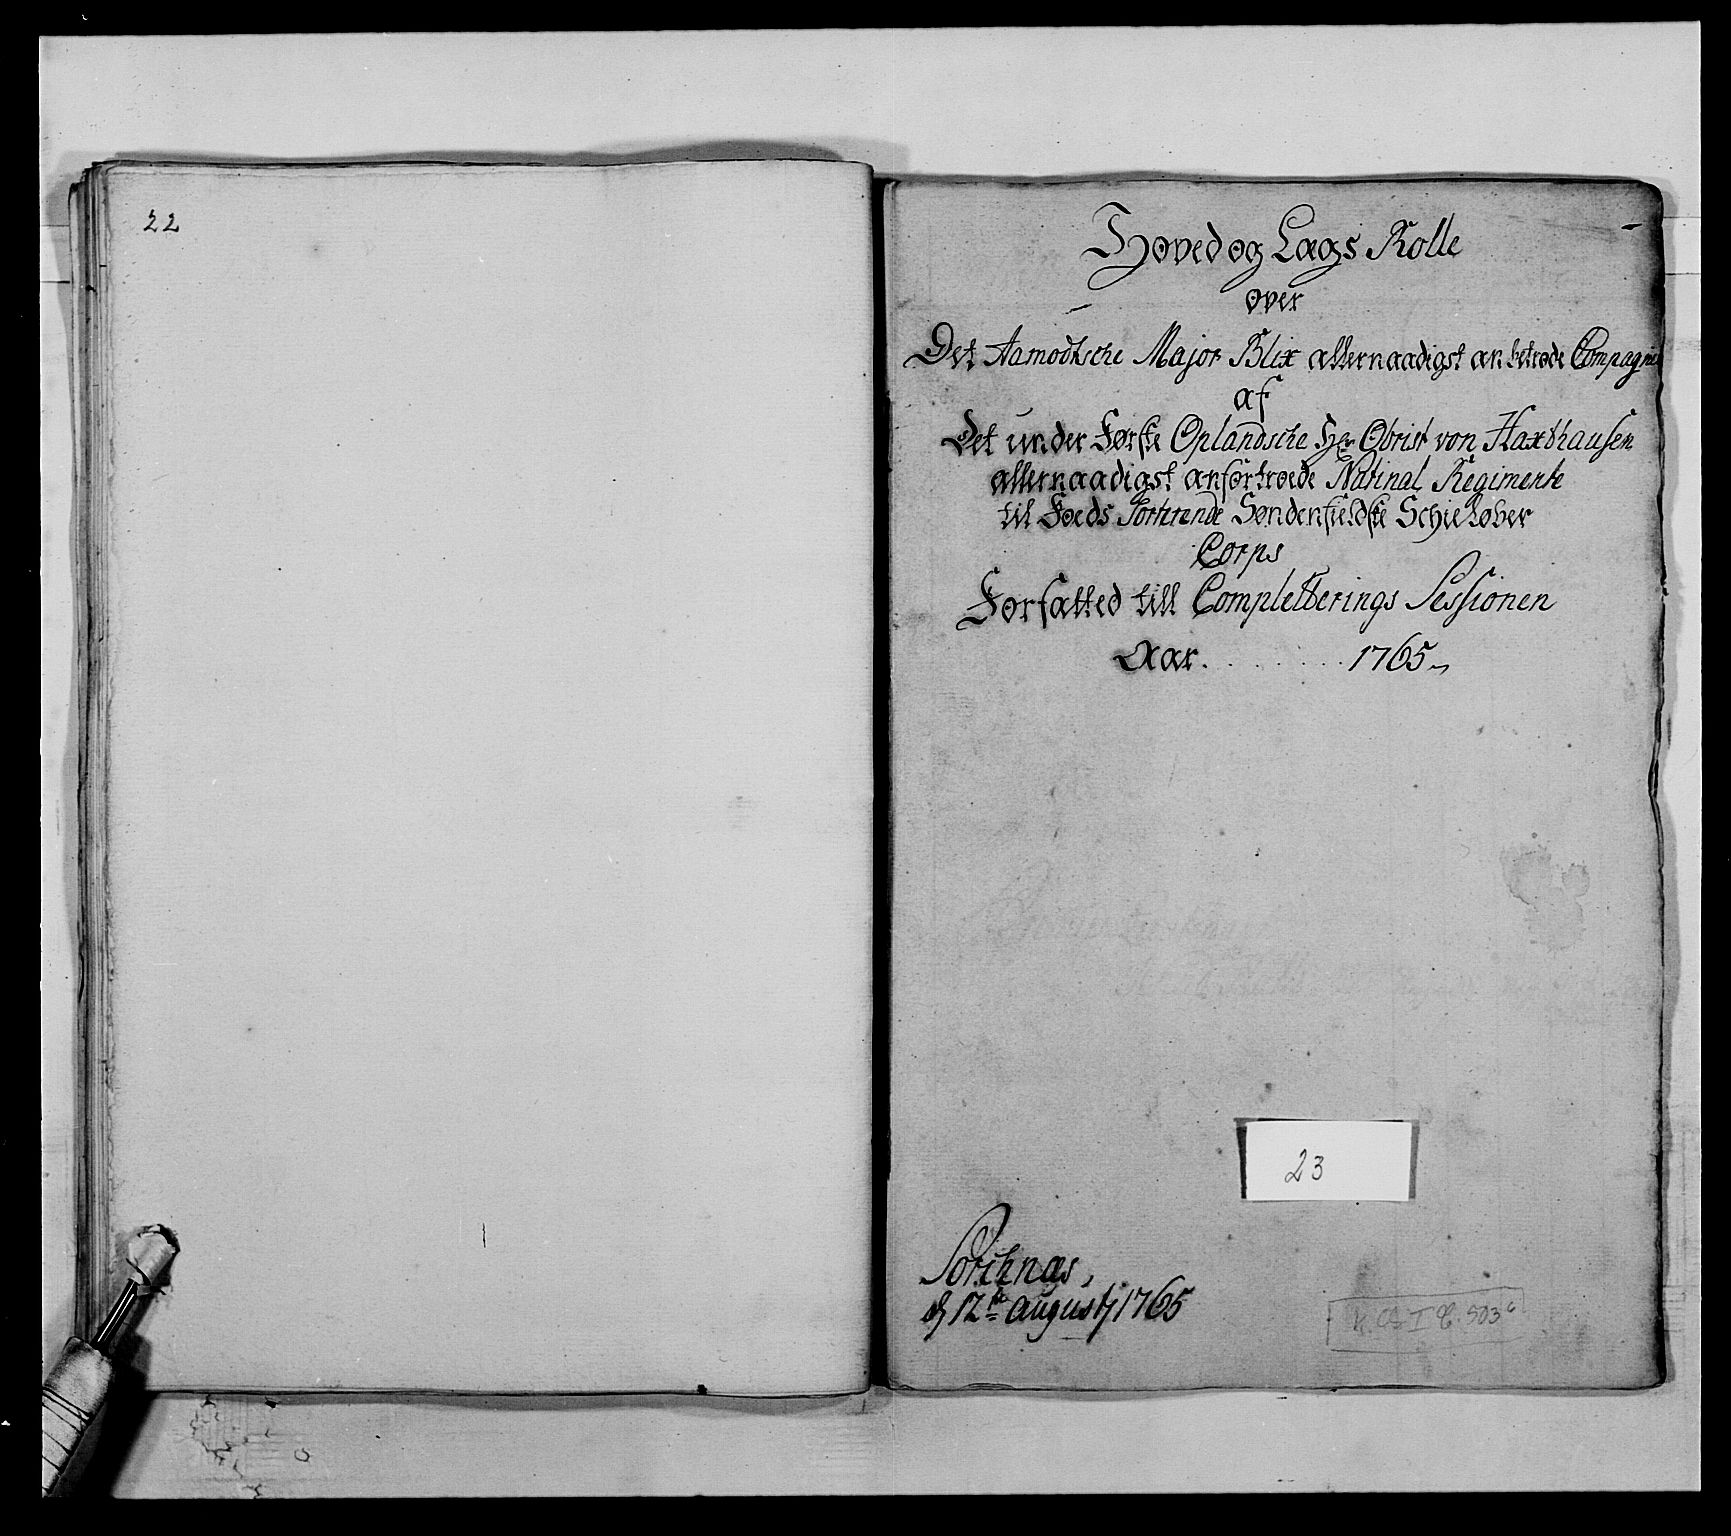 22
Hoved og Lægs Rolle
over
Det Aamodtsche Major Blix allernaadigst anbetrode Compagnie
af
Det under Første Oplandsche Hr Obrist von Haxthausen
allernaadigst anfortroede Natinal Regimente
til Foeds Sorterende Søndenfieldske Schieløber
Corps
Forfatted till Completterings Sessionen
Aar. . . . . . . . 1765
23
Sorknæs,
d 12te Augustj 1765